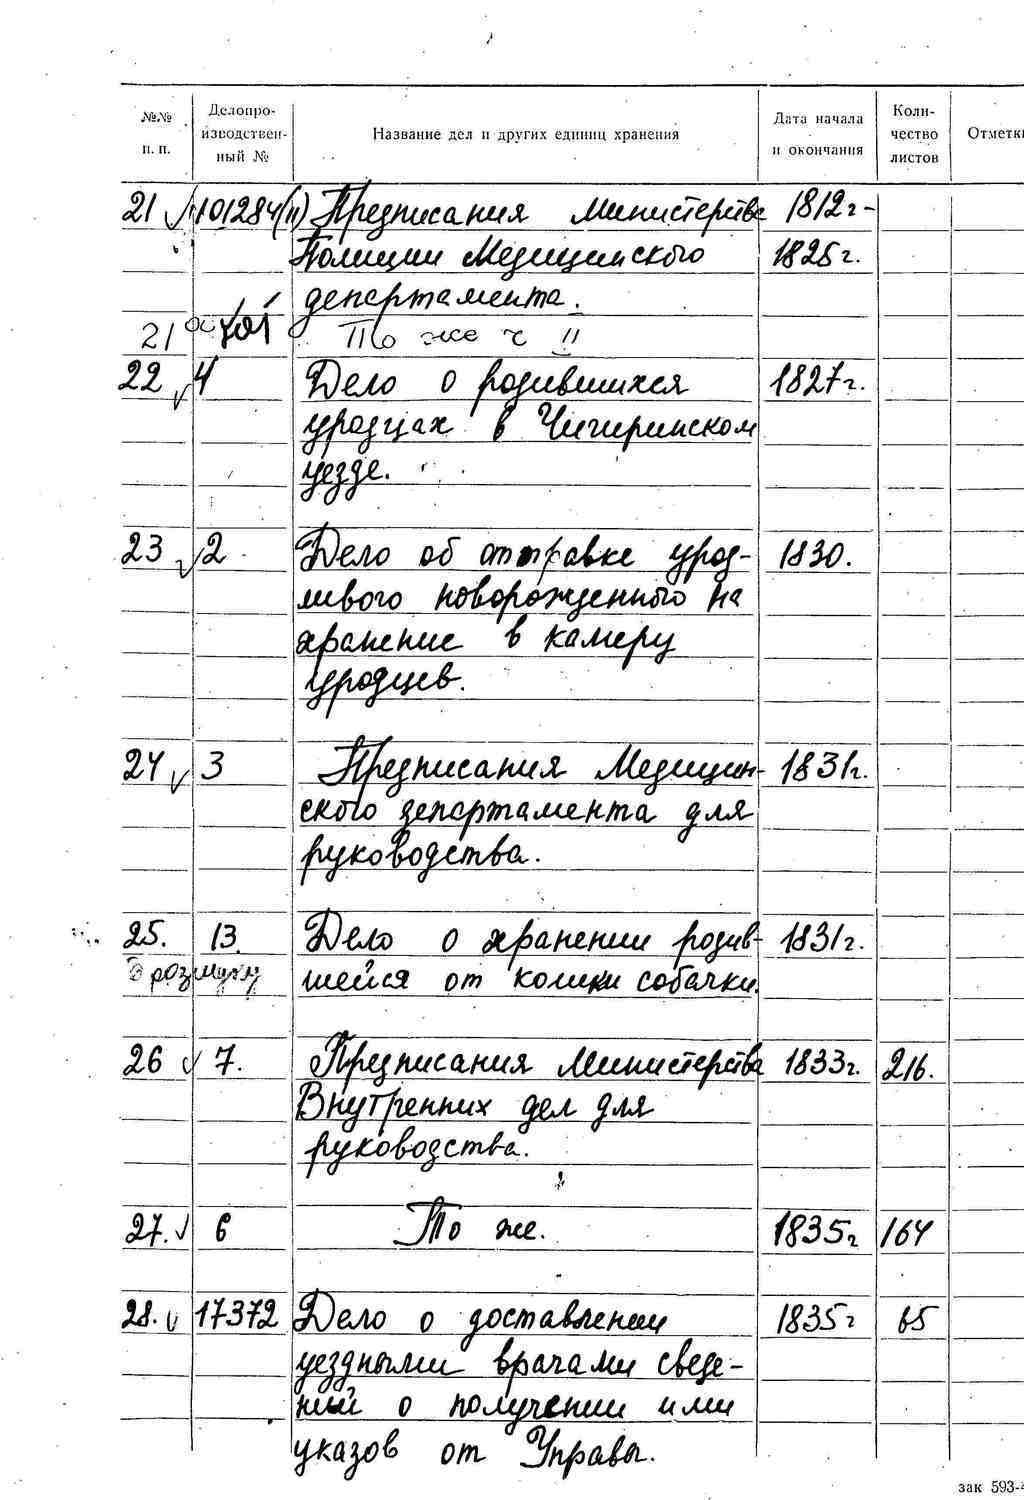 №№ п. п. Делопроизводственный № Название дел и других единиц хранения Дата начала и окончания Количество листов Отметки
21 101284(11) Предписания Министерства 1812г-
Полиции Медицинского 1825г.
департамента.
21а То же ч II
22 4 Дело о родившихся 1827г.
уродцах в Чигиринском
уезде.
23 2 Дело об отправке урод- 1830.
ливого новорожденного на
хранение в камеру
уродцев.
24 3 Предписания Медицин- 1831г.
ского департамента для
руководства.
25. 13. Дело о хранении родив- 1831г.
В розыску шейся от кошки собачки.
26 7. Предписания Министерства 1833г. 216.
Внутренних дел для
руководства.
27. 6 То же. 1835г 164
28. 17372 Дело о доставлении 1835г 65
уездными врачами сведе-
ний о получении ими
указов от Управы.
зак 593-4